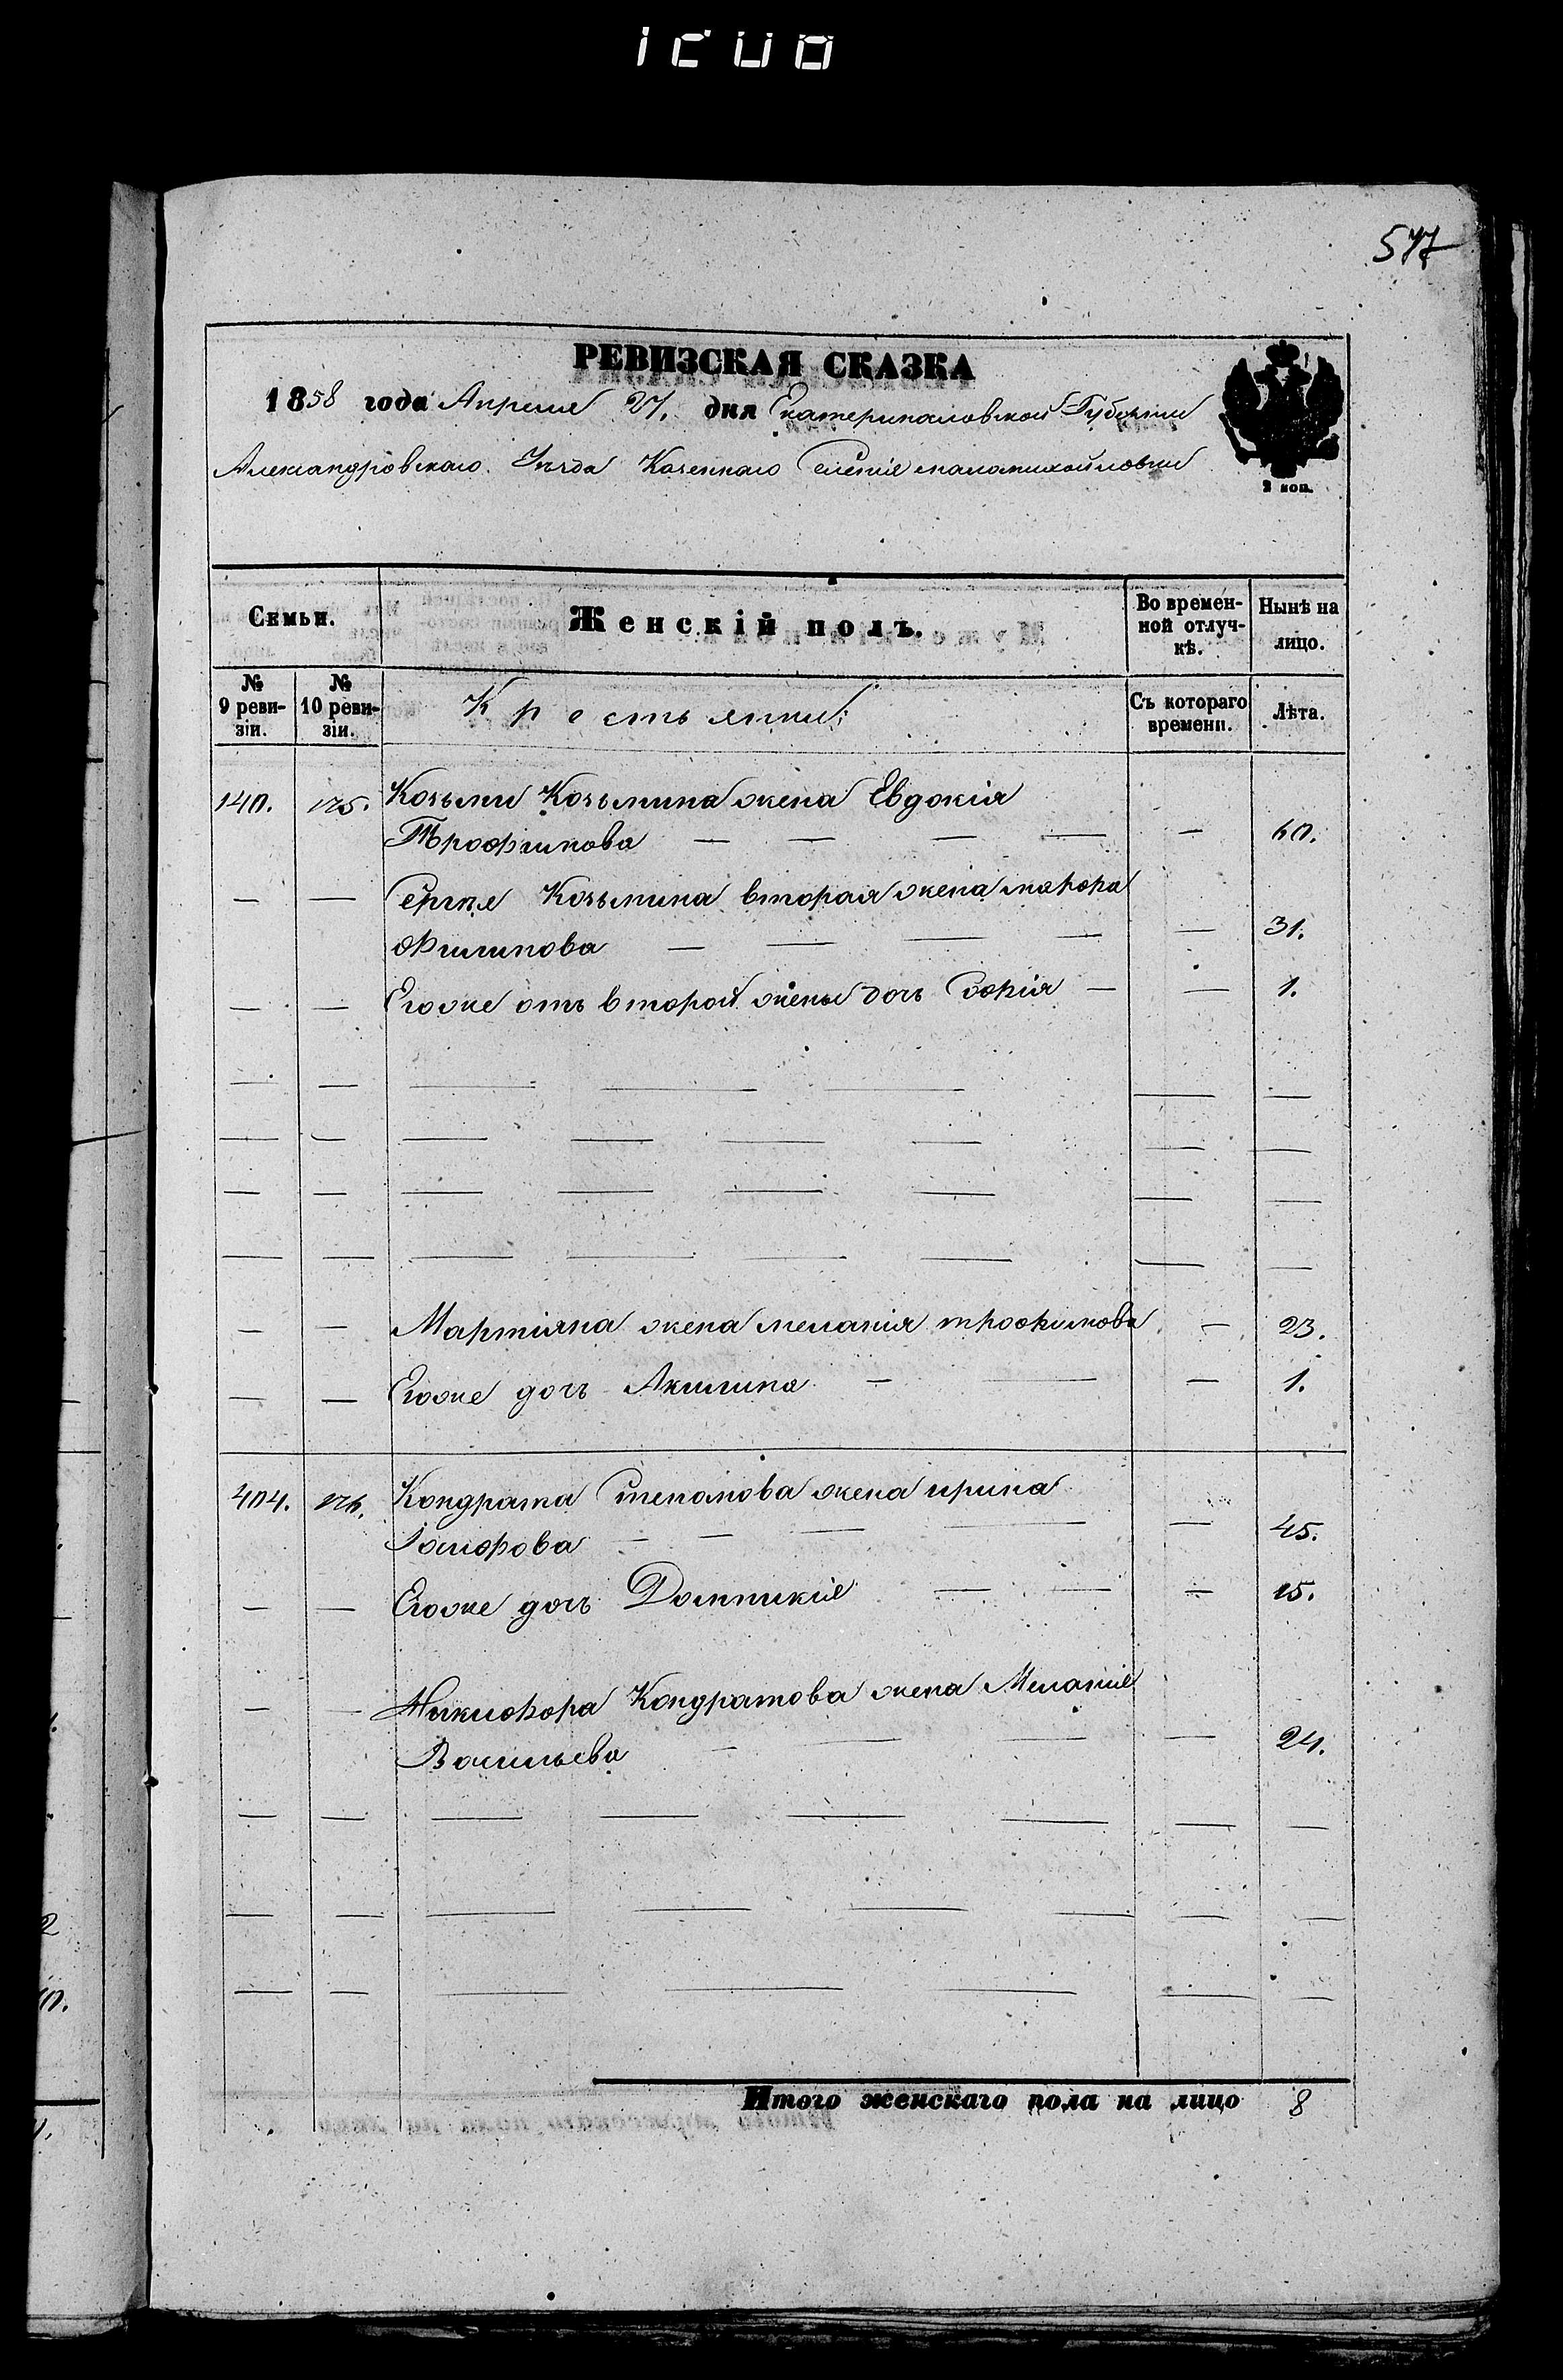 577
РЕВИЗСКАЯ СКАЗКА
1858 года Апреля 27. дня Екатеринославской Губерніи
Александровскаго Уезда Казеннаго Селенія маломихайловки
2 коп.
Семьи. Женскій полъ. Во времен- Нынѣ на
ной отлуч- лицо.
кѣ.
№ № Крестьянки;
9 реви- 10 реви- Съ котораго Лѣта.
зіи. зіи. времени.
140. 175. Козьмы Козьмина жена Евдокія
Трофимова — — — — — 60.
— — Сергѣя Козьмина вторая жена марфа
Филипова — — — — — 31.
— — Егоже отъ второй жены дочь Софія — — 1.
— — Мартіяна жена меланія трофимова — 23.
— — Егоже дочь Акилина — — — 1.
404. 176. Кондрата Степанова жена ирина
— — — — — 45.
— — Егоже дочь Домникія — — — 15.
— — Никифора Кондратова жена Меланія
Васильева — — — — 24.
Итого женскаго пола на лицо 8